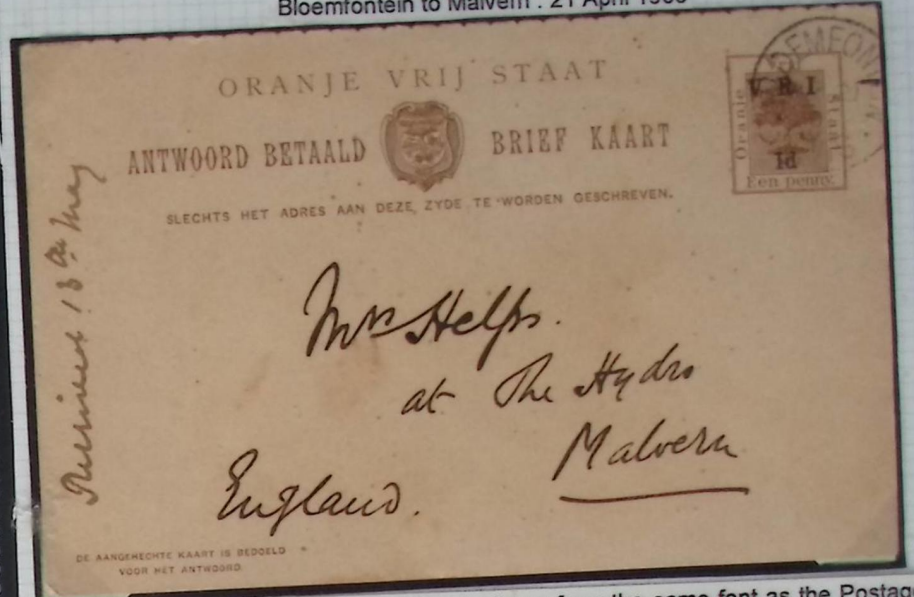 Bloemfontein to Malvern : 21 April
ORANJE VRIJ STAAT
ANTWOORD BETAALD BRIEF KAART
SLECHTS HET ADRES AAN DEZE ZYDE TE WORDEN GESCHREVEN.
V R I
Oranje
Staat
1d
Een penny.
Mrs Helps.
at The Hydro
Malvern
England.
18th May
DE AANGEHECHTE KAART IS BEDOELD
VOOR HET ANTWOORD.
the same font as the Postag